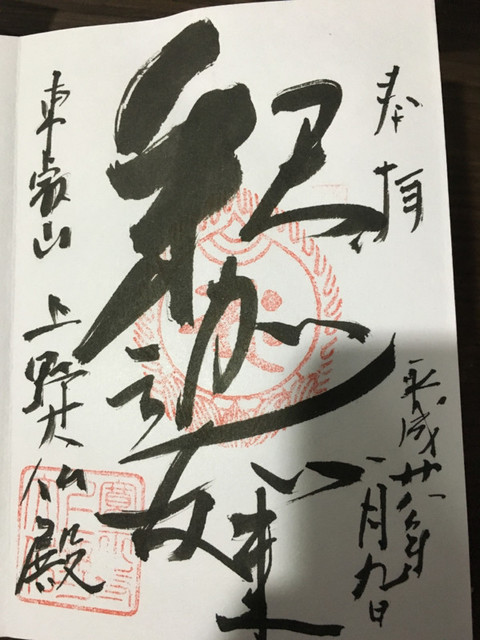 奉拝
平成廿八年
一月九日
釈迦如来
東叡山 上野大仏殿